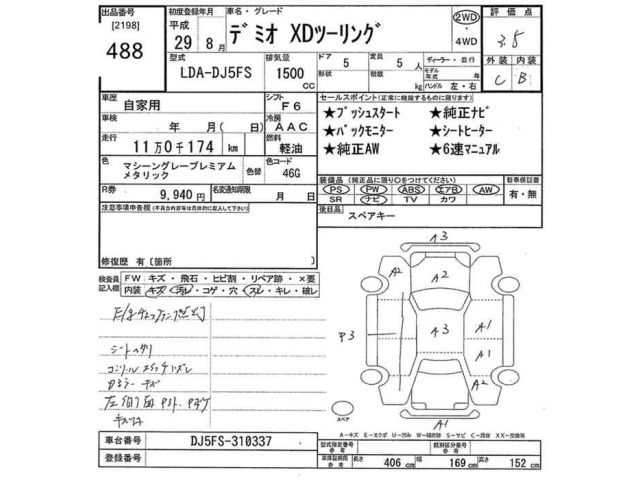 出品番号 初度登録年月 車名・グレード 評価点
[2198] 平成 デミオ XDツーリング 2WD 3.5
488 29年 8月 ・4WD
型式 排気量 ドア 定員 ディーラー・並行 外装 内装
LDA-DJ5FS 1500 CC 5 5人 モデル年式 年 C B
形状 積載 kg ハンドル 左・右
車歴 自家用 シフト F6 セールスポイント(正常に機能するものに限ります)
車検 年 月( 日) 冷房 AAC ★プッシュスタート ★純正ナビ
走行 11万0千174 km 燃料 軽油 ★バックモニター ★シートヒーター
★純正AW ★6速マニュアル
色 マシーングレープレミアム 色替 色コード
メタリック 46G 装備品(純正品に限り○をつけてください) 新車保証書
R券 9,940円 名変通知期限 月 日 PS PW ABS エアB AW 有・無
SR ナビ TV カワ
注意事項申告欄(不具合内容等は具体的に記入して下さい) 後日品 スペアキー
修復歴 有〔箇所 〕
検査員 FW キズ・飛石・ヒビ割・リペア跡・×要
記入欄 内装 キズ・汚レ・コゲ・穴・スレ・キレ・破レ
A3
A2 A2
P3 A3 A1
A1
A2
A1
スペア
A-キズ E-エクボ U-凹み W-補修跡 S-サビ C-腐食 XX-交換済
車台番号 DJ5FS-310337 型式指定番号 参考 類別区分番号 参考
登録番号 車検証記載 参考 長さ 406 cm 幅 169 cm 高さ 152 cm